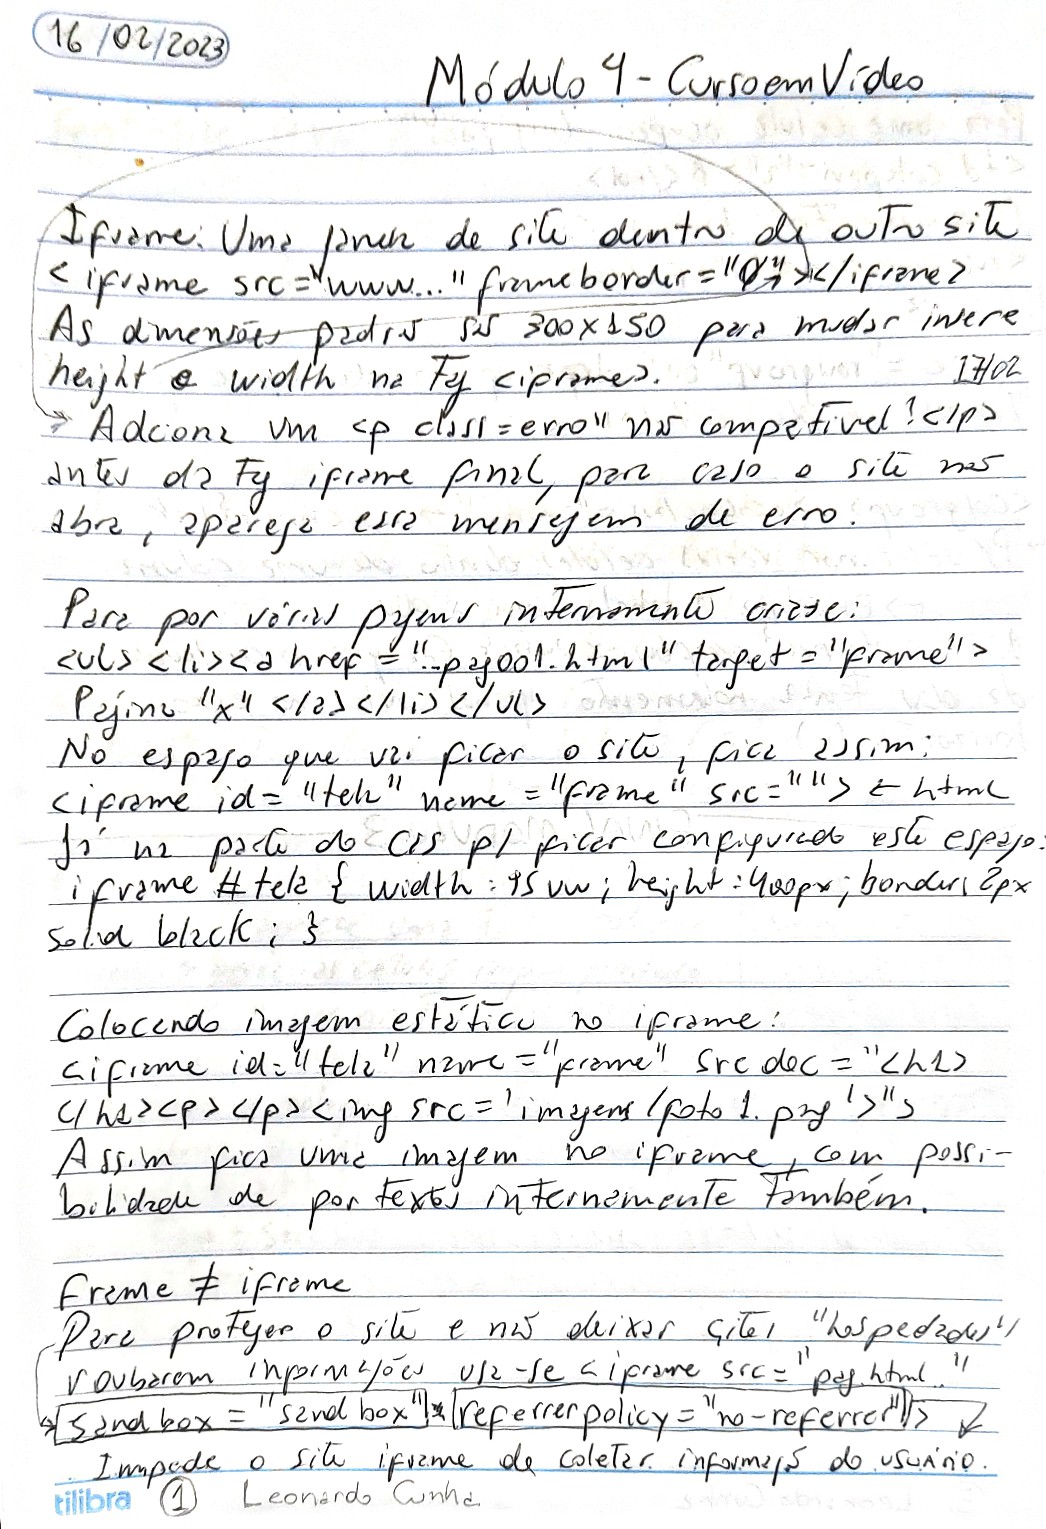 16/02/2023
Módulo 4 - CursoemVídeo
Iframe: Uma janela de site dentro de outro site
<iframe src="www..." frameborder="0"></iframe>
As dimensões padrão são 300x150 para mudar insere
height e width na Tag <iframe>. 17/02
→ Adciona um <p class=erro" não compatível!</p>
antes da Tag iframe final, para caso o site não
abra, apareça essa mensagem de erro.
Para por várias págens internamente cria-se:
<ul><li><a href="...pag001.html" target="frame">
Página "x"</a></li></ul>
No espaço que vai ficar o site, fica assim:
<iframe id="tela" name="frame" src=""> ← html
Já na parte do CSS p/ ficar configurado este espaço:
iframe #tela { width: 95vw; height: 400px; border: 2px
solid black; }
Colocando imagem estática no iframe:
<iframe id="tela" name="frame" src doc="<h1>
</h1><p></p><img src='imagens/foto1.png'>">
Assim fica uma imagem no iframe, com possi-
bilidade de por textos internamente também.
Frame ≠ iframe
Para proteger o site e não deixar sites "hospedados"
roubarem informações usa-se <iframe src="pag.html.."
→ sandbox="sandbox" referrerpolicy="no-referrer">
Impede o site iframe de coletar informaçõ do usuário.
tilibra 1 Leonardo Cunha